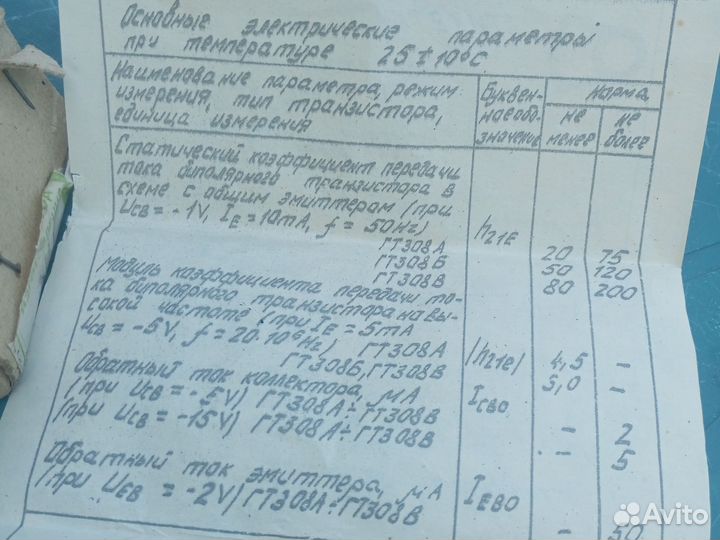 Основные электрические параметры
при температуре 25±10°С
Наименование параметра, режим
измерения, тип транзистора,
единица измерения
Буквен-
ное обо-
значение
Норма
не
менее
не
более
Статический коэффициент передачи
тока биполярного транзистора в
схеме с общим эмиттером (при
UCB = -1V, IE = 10mA, f = 50Hz)
h21E
ГТ308А 20 75
ГТ308Б 50 120
ГТ308В 80 200
Модуль коэффициента передачи то-
ка биполярного транзистора на вы-
сокой частоте (при IE = 5mA
UCB = -5V, f = 20·10⁶Hz) ГТ308А |h21e| 4,5 -
ГТ308Б, ГТ308В 5,0 -
Обратный ток коллектора, μA ICBO
(при UCB = -5V) ГТ308А÷ГТ308В - 2
(при UCB = -15V) ГТ308А÷ГТ308В - 5
Обратный ток эмиттера, μA IEBO
(при UEB = -2V) ГТ308А÷ГТ308В - 50
Avito